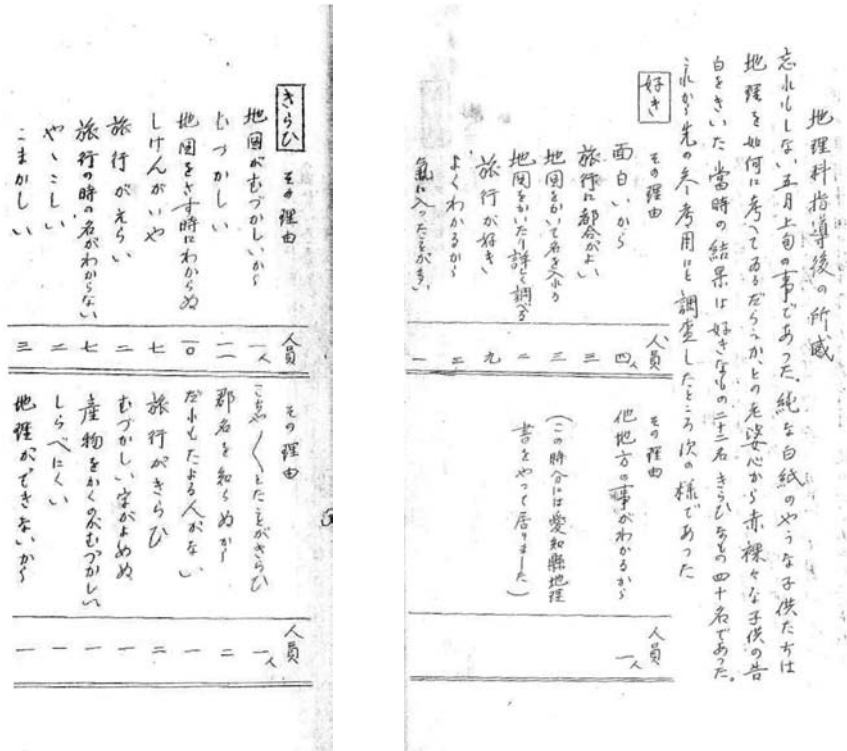 地理科指導後の所感
忘れもしない五月上旬の事であった。純な白紙のやうな子供たちは
地理を如何に考へてゐるだらうかとの老婆心から赤裸々な子供の告
白をきいた當時の結果は好きなもの二十二名きらひなもの四十名であった。
これから先の参考用にと調査したところ次の様であった
好き その理由 人員 その理由 人員
面白いから 四人 他地方の事がわかるから 一人
旅行に都合がよい 三
地図をかいて名を入れる 三 (この時分には愛知縣地理
地図をかいたり詳しく調べる 二 書をやって居りました)
旅行が好き 九
よくわかるから 二
氣に入ったとこが多い 一
きらひ その理由 人員 その理由 人員
地図がむづかしいから 一人 こちゃ〱とたことがきらひ 一人
むづかしい 一一 郡名を知らぬから 二
地図をさす時にわからぬ 一〇 だれもたよる人がない 一
しけんがいや 七 旅行がきらひ 二
旅行がえらい 二 むづかしい字がよめぬ 一
旅行の時の名がわからない 七 産物をかくのがむづかしい 一
やゝこしい 二 しらべにくい 一
こまかしい 三 地理ができないから 一